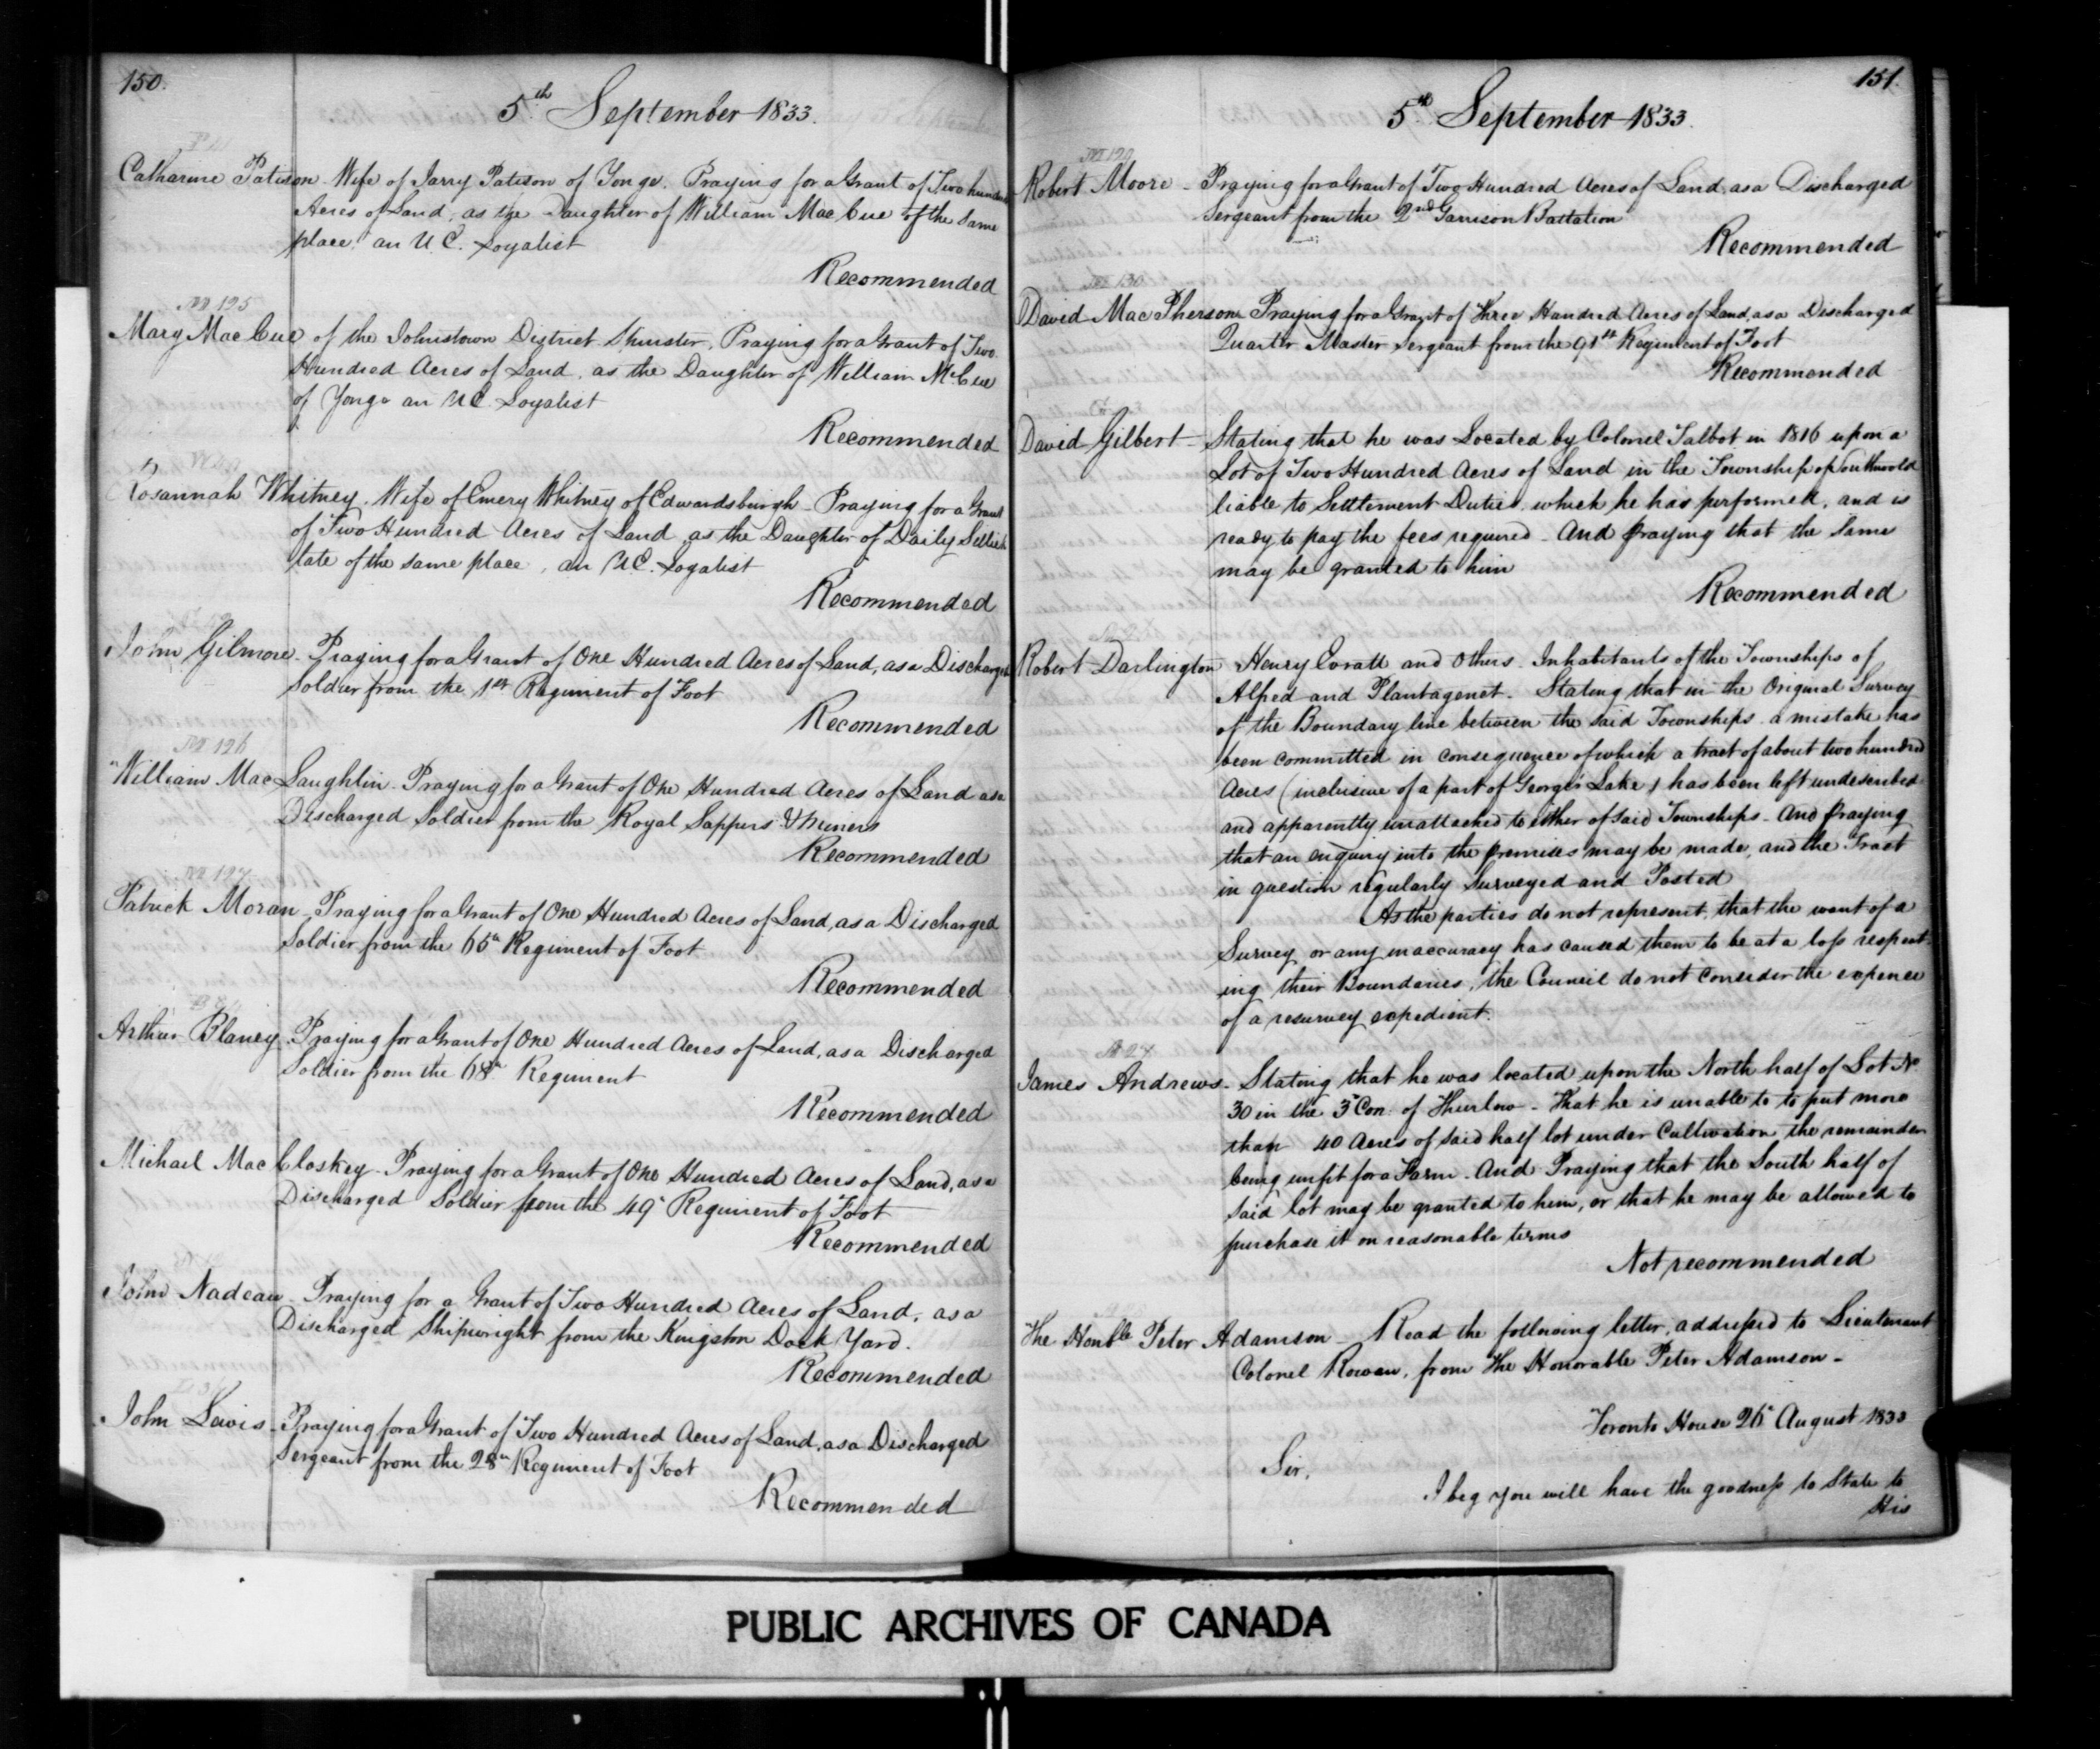 150.
5th September 1833.
Catharine Patison Wife of Jarry Patison of Yonge. Praying for a Grant of Two hundred
Acres of Land, as the Daughter of William MacCue of the same
place an U.E. Loyalist
Recommended
M 125
Mary MacCue of the Johnstown District Spinster, Praying for a Grant of Two
Hundred Acres of Land, as the Daughter of William McCue
of Yonge an U.E. Loyalist
Recommended
Rosannah Whitney, Wife of Emery Whitney of Edwardsburgh - Praying for a Grant
of Two Hundred Acres of Land, as the Daughter of Daily Sellick
late of the same place, an U.E. Loyalist
Recommended
John Gilmore - Praying for a Grant of One Hundred Acres of Land, as a Discharged
Soldier from the 1st Regiment of Foot
Recommended
M 126
William MacLaughlin - Praying for a Grant of One Hundred Acres of Land as a
Discharged Soldier from the Royal Sappers & Miners
Recommended
M 127
Patrick Moran - Praying for a Grant of One Hundred Acres of Land, as a Discharged
Soldier from the 65th Regiment of Foot
Recommended
Arthur Blaney Praying for a Grant of One Hundred Acres of Land, as a Discharged
Soldier from the 68th Regiment
Recommended
Michael MacCloskey - Praying for a Grant of One Hundred Acres of Land, as a
Discharged Soldier from the 49th Regiment of Foot
Recommended
John Nadeau - Praying for a Grant of Two Hundred Acres of Land, as a
Discharged Shipwright from the Kingston Dock Yard.
Recommended
John Lewis - Praying for a Grant of Two Hundred Acres of Land, as a Discharged
Sergeant from the 28th Regiment of Foot
Recommended
151.
5th September 1833.
M 129
Robert Moore - Praying for a Grant of Two Hundred Acres of Land, as a Discharged
Sergeant from the 2nd Garrison Battalion
Recommended
M 130
David MacPherson Praying for a Grant of Three Hundred Acres of Land, as a Discharged
Quarter Master Sergeant from the 91st Regiment of Foot
Recommended
David Gilbert - Stating that he was Located by Colonel Talbot in 1816 upon a
Lot of Two Hundred Acres of Land in the Township of Southwold
liable to Settlement Duties which he has performed, and is
ready to pay the fees required - And praying that the same
may be granted to him
Recommended
Robert Darlington Henry and Others - Inhabitants of the Townships of
Alfred and Plantagenet - Stating that in the Original Survey
of the Boundary line between the said Townships a mistake has
been committed in consequence of which a tract of about two hundred
Acres (inclusive of a part of George's Lake) has been left undescribed
and apparently unattached to either of said Townships - And praying
that an enquiry into the premises may be made, and the Tract
in question regularly Surveyed and Posted
As the parties do not represent, that the want of a
Survey or any inaccuracy has caused them to be at a loss respect-
ing their Boundaries, the Council do not consider the expence
of a resurvey expedient.
A 24
James Andrews - Stating that he was located upon the North half of Lot No
30 in the 3d Con: of Thurlow - That he is unable to to put more
than 40 Acres of said half lot under Cultivation, the remainder
being unfit for a Farm - And Praying that the South half of
said lot may be granted to him, or that he may be allowed to
purchase it on reasonable terms
Not recommended
The Honble Peter Adamson - Read the following letter, addressed to Lieutenant
Colonel Rowan, from The Honorable Peter Adamson -
Toronto House 26th August 1833
Sir,
I beg you will have the goodness to State to
His
PUBLIC ARCHIVES OF CANADA